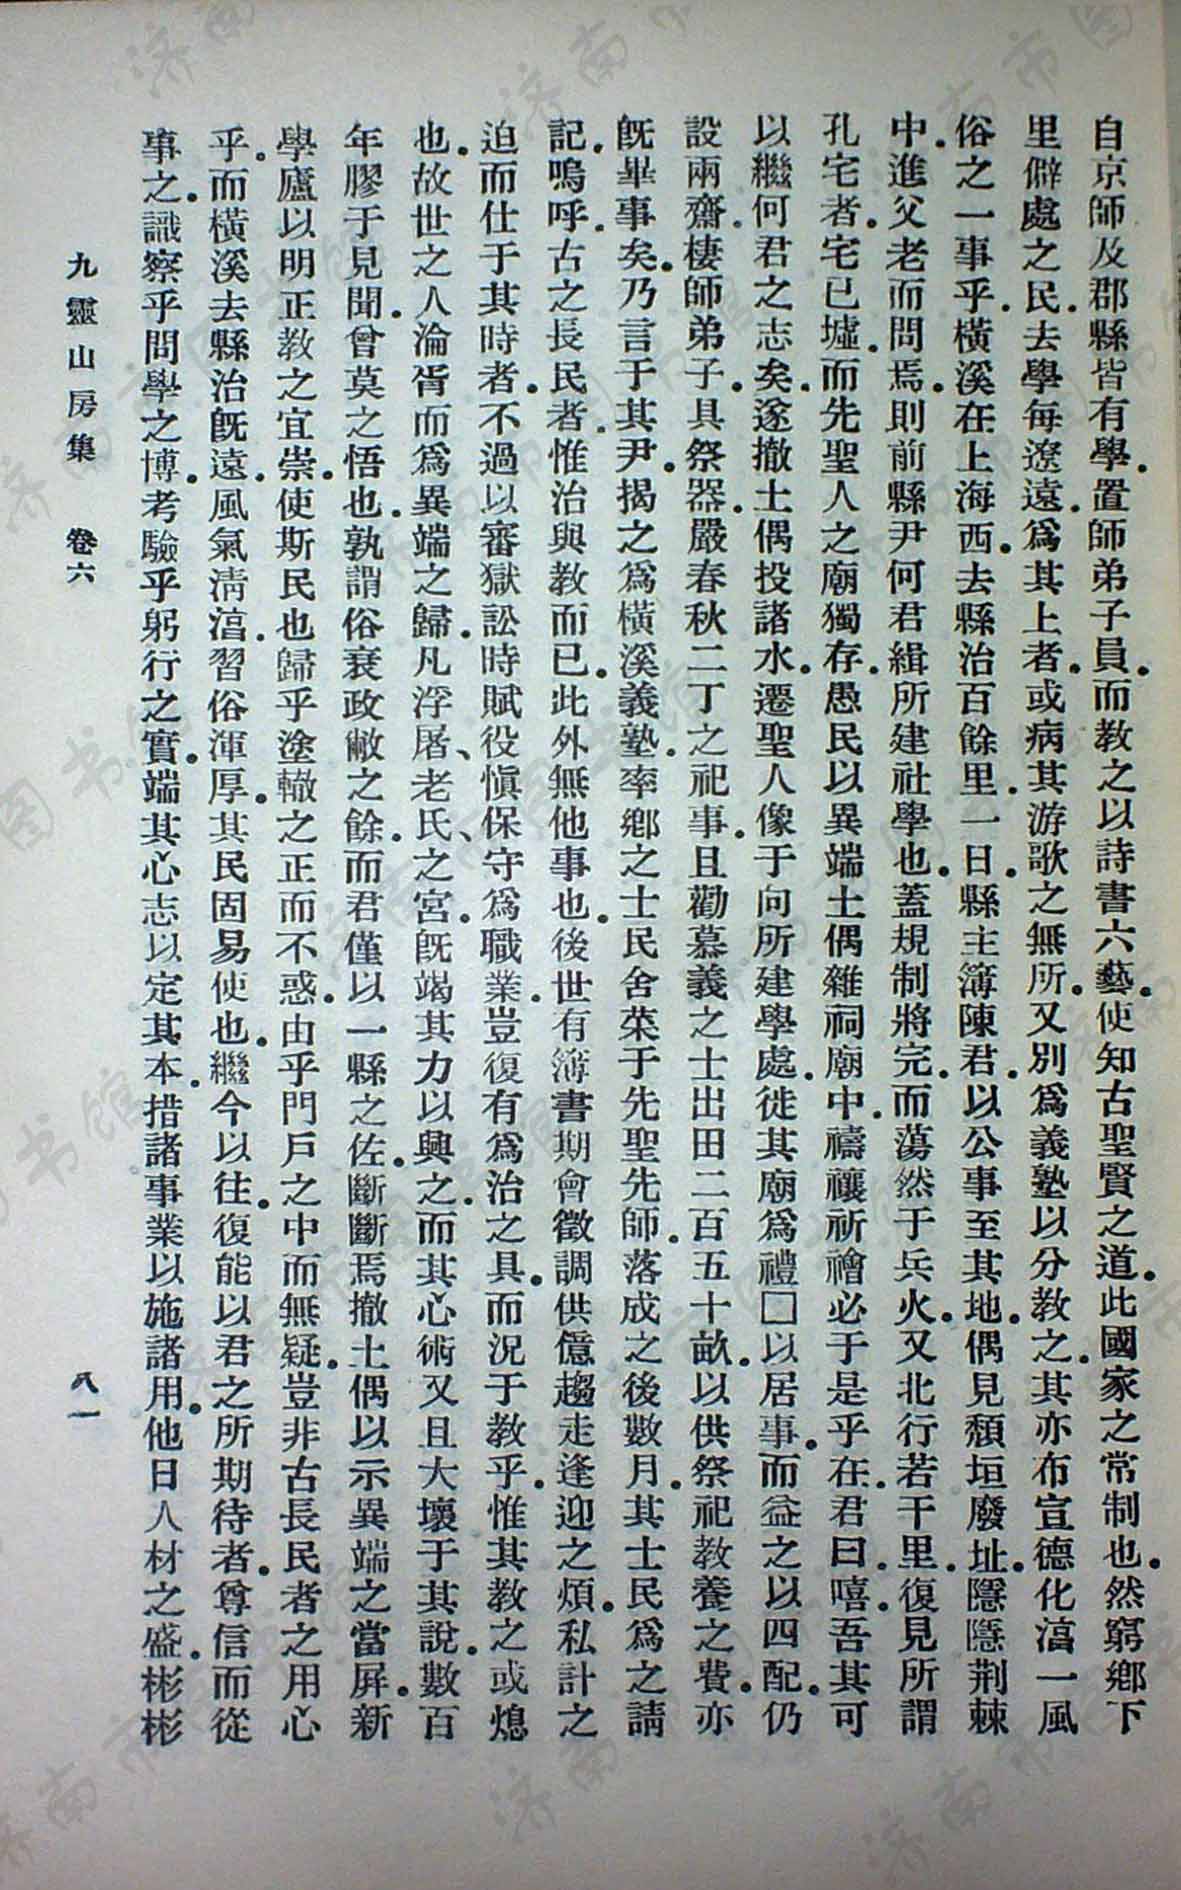 自京師及郡縣皆有學。置師弟子員。而教之以詩書六藝。使知古聖賢之道。此國家之常制也。然窮鄉下
里僻處之民。去學每遼遠。爲其上者。或病其游歌之無所。又別爲義塾以分教之。其亦布宣德化。㴠一風
俗之一事乎。橫溪在上海西。去縣治百餘里。一日。縣主簿陳君。以公事至其地。偶見頹垣廢址。隱隱荆棘
中。進父老而問焉。則前縣尹何君緝所建社學也。蓋規制將完。而蕩然于兵火。又北行若干里。復見所謂
孔宅者。宅已墟。而先聖人之廟獨存。愚民以異端土偶雜祠廟中。禱禳祈禬必于是乎在。君曰。嘻。吾其可
以繼何君之志矣。遂撤土偶投諸水。遷聖人像于向所建學處。徙其廟爲禮□以居事。而益之以四配。仍
設兩齋。棲師弟子。具祭器。嚴春秋二丁之祀事。且勸慕義之士出田二百五十畝。以供祭祀教養之費。亦
旣畢事矣。乃言于其尹。揭之爲橫溪義塾。率鄉之士民舍菜于先聖先師。落成之後數月。其士民爲之請
記。嗚呼。古之長民者。惟治與教而已。此外無他事也。後世有簿書期會徵調供億趨走逢迎之煩。私計之
迫而仕于其時者。不過以審獄訟。時賦役。愼保守爲職業。豈復有爲治之具。而況于教乎。惟其教之或熄
也。故世之人淪胥而爲異端之歸。凡浮屠、老氏、之宮。旣竭其力以興之。而其心術又且大壞于其說。數百
年膠于見聞。曾莫之悟也。孰謂俗衰政敝之餘。而君僅以一縣之佐。斷斷焉撤土偶以示異端之當屏。新
學廬以明正教之宜崇。使斯民也歸乎塗轍之正而不惑。由乎門戶之中而無疑。豈非古長民者之用心
乎。而橫溪去縣治旣遠。風氣淸㴠。習俗渾厚。其民固易使也。繼今以往。復能以君之所期待者。尊信而從
事之。識察乎問學之博。考驗乎躬行之實。端其心志以定其本。措諸事業以施諸用。他日人材之盛。彬彬
九靈山房集 卷六 八一